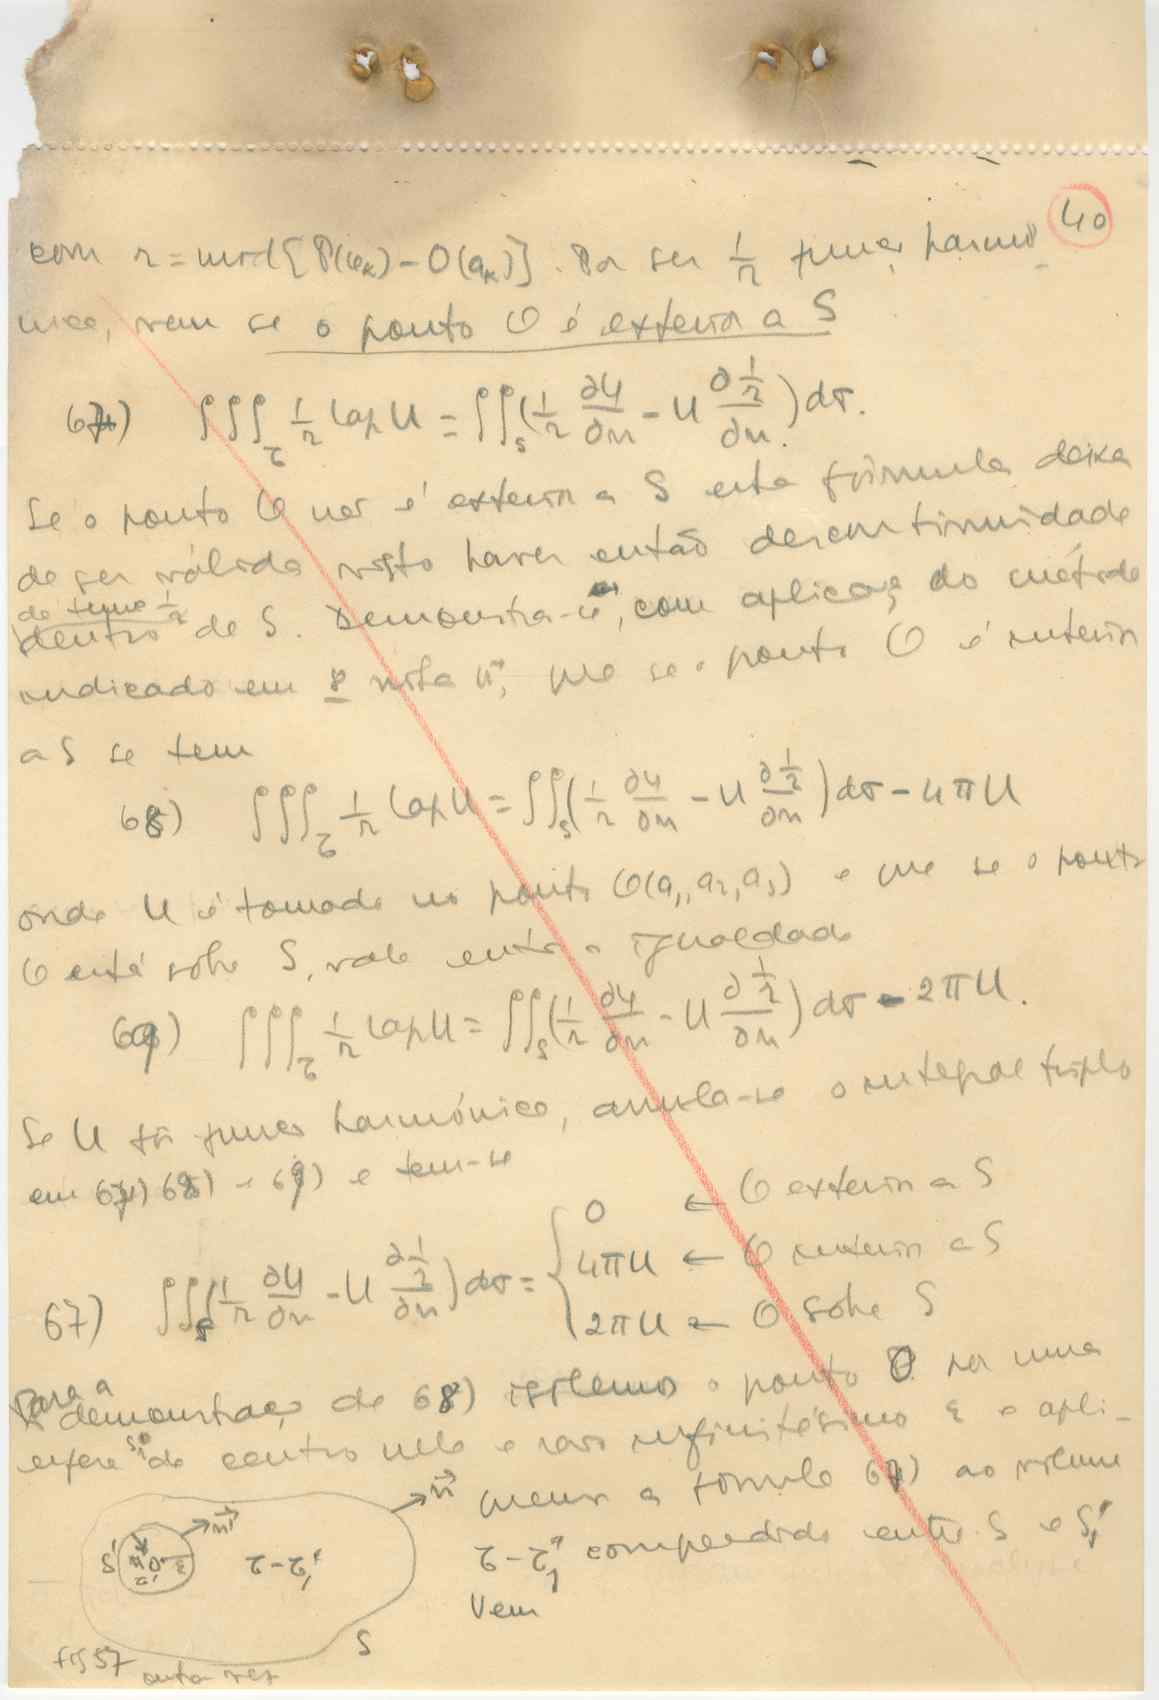 40
com r = mod{P(xₖ) - O(aₖ)}. Por ser 1/r função harmó-
nica, vem se o ponto O é exterior a S
67) ∫∫∫_τ 1/r lap U = ∫∫_S (1/r ∂U/∂n - U ∂(1/r)/∂n) dσ.
Se o ponto O não é exterior a S esta fórmula deixa
de ser válida visto haver então descontinuidade
de função 1/r
dentro de S. Demonstra-se, com aplicação do método
indicado em 8 nota, que se o ponto O é interior
a S se tem
68) ∫∫∫_τ 1/r lap U = ∫∫_S (1/r ∂U/∂n - U ∂(1/r)/∂n) dσ - 4πU
onde U é tomado no ponto O(a₁, a₂, a₃) e que se o ponto
O está sobre S, vale então a igualdade
69) ∫∫∫_τ 1/r lap U = ∫∫_S (1/r ∂U/∂n - U ∂(1/r)/∂n) dσ - 2πU.
Se U fôr função harmónica, anula-se o integral triplo
em 67) 68) e 69) e tem-se
67) ∫∫_S (1/r ∂U/∂n - U ∂(1/r)/∂n) dσ = { 0 ← O exterior a S
4πU ← O interior a S
2πU ← O sobre S
Para a demonstração de 68) isolemos o ponto O por uma
esfera S₁' de centro nele e raio infinitésimo ε e apli-
quemos a fórmula 67) ao volume
τ-τ₁' compreendido entre S e S₁'
Vem
n⃗
n⃗'
S'
O
ε
τ'
τ-τ₁'
S
fig 57
outra vez